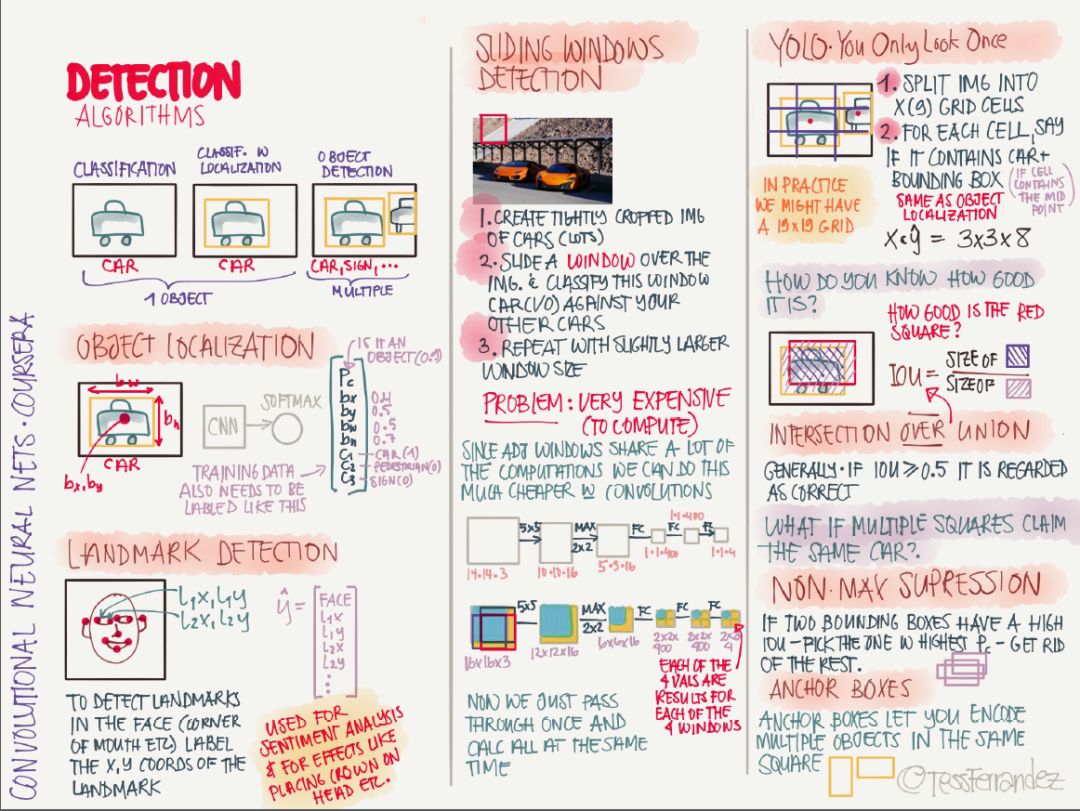 CONVOLUTIONAL NEURAL NETS · COURSERA
DETECTION
ALGORITHMS
CLASSIFICATION
CLASSIF. W
LOCALIZATION
OBJECT
DETECTION
CAR
CAR
CAR, SIGN, ...
1 OBJECT
MULTIPLE
OBJECT LOCALIZATION
bw
bh
CAR
bx, by
CNN
SOFTMAX
IS IT AN
OBJECT (0.1)
Pc
bx
by
bw
bh
C1
C2
C3
0.5
0.5
0.7
CAR (1)
PEDESTRIAN (0)
SIGN (0)
TRAINING DATA
ALSO NEEDS TO BE
LABLED LIKE THIS
LANDMARK DETECTION
L1X, L1Y
L2X, L2Y
ŷ =
FACE
L1X
L1Y
L2X
L2Y
⋮
TO DETECT LANDMARKS
IN THE FACE (CORNER
OF MOUTH ETC) LABEL
THE X,Y COORDS OF THE
LANDMARK
USED FOR
SENTIMENT ANALYSIS
& FOR EFFECTS LIKE
PLACING CROWN ON
HEAD ETC.
SLIDING WINDOWS
DETECTION
1. CREATE TIGHTLY CROPPED IMG
OF CARS (LOTS)
2. SLIDE A WINDOW OVER THE
IMG. & CLASSIFY THIS WINDOW
CAR (1/0) AGAINST YOUR
OTHER CARS
3. REPEAT WITH SLIGHTLY LARGER
WINDOW SIZE
PROBLEM: VERY EXPENSIVE
(TO COMPUTE)
SINCE ADJ WINDOWS SHARE A LOT OF
THE COMPUTATIONS WE CAN DO THIS
MUCH CHEAPER W CONVOLUTIONS
5x5
MAX
2x2
FC
FC
FC
14·14·3
10·10·16
5·5·16
1·1·400
1·1·400
1·1·4
5x5
MAX
2x2
FC
FC
FC
16x16x3
12x12x16
6x6x16
2x2x
400
2x2x
400
2x2x
4
EACH OF THE
4 VALS ARE
RESULTS FOR
EACH OF THE
4 WINDOWS
NOW WE JUST PASS
THROUGH ONCE AND
CALC ALL AT THE SAME
TIME
YOLO · You Only Look Once
1. SPLIT IMG INTO
X (9) GRID CELLS
2. FOR EACH CELL, SAY
IF IT CONTAINS CAR +
BOUNDING BOX
(IF CELL
CONTAINS
THE MID
POINT)
SAME AS OBJECT
LOCALIZATION
IN PRACTICE
WE MIGHT HAVE
A 19x19 GRID
ŷ = 3x3x8
HOW DO YOU KNOW HOW GOOD
IT IS?
HOW GOOD IS THE RED
SQUARE?
IOU =
SIZE OF
SIZE OF
INTERSECTION OVER UNION
GENERALLY · IF IOU ≥ 0.5 IT IS REGARDED
AS CORRECT
WHAT IF MULTIPLE SQUARES CLAIM
THE SAME CAR?
NON·MAX SUPRESSION
IF TWO BOUNDING BOXES HAVE A HIGH
IOU - PICK THE ONE W HIGHEST Pc - GET RID
OF THE REST.
ANCHOR BOXES
ANCHOR BOXES LET YOU ENCODE
MULTIPLE OBJECTS IN THE SAME
SQUARE
@TessFerrandez